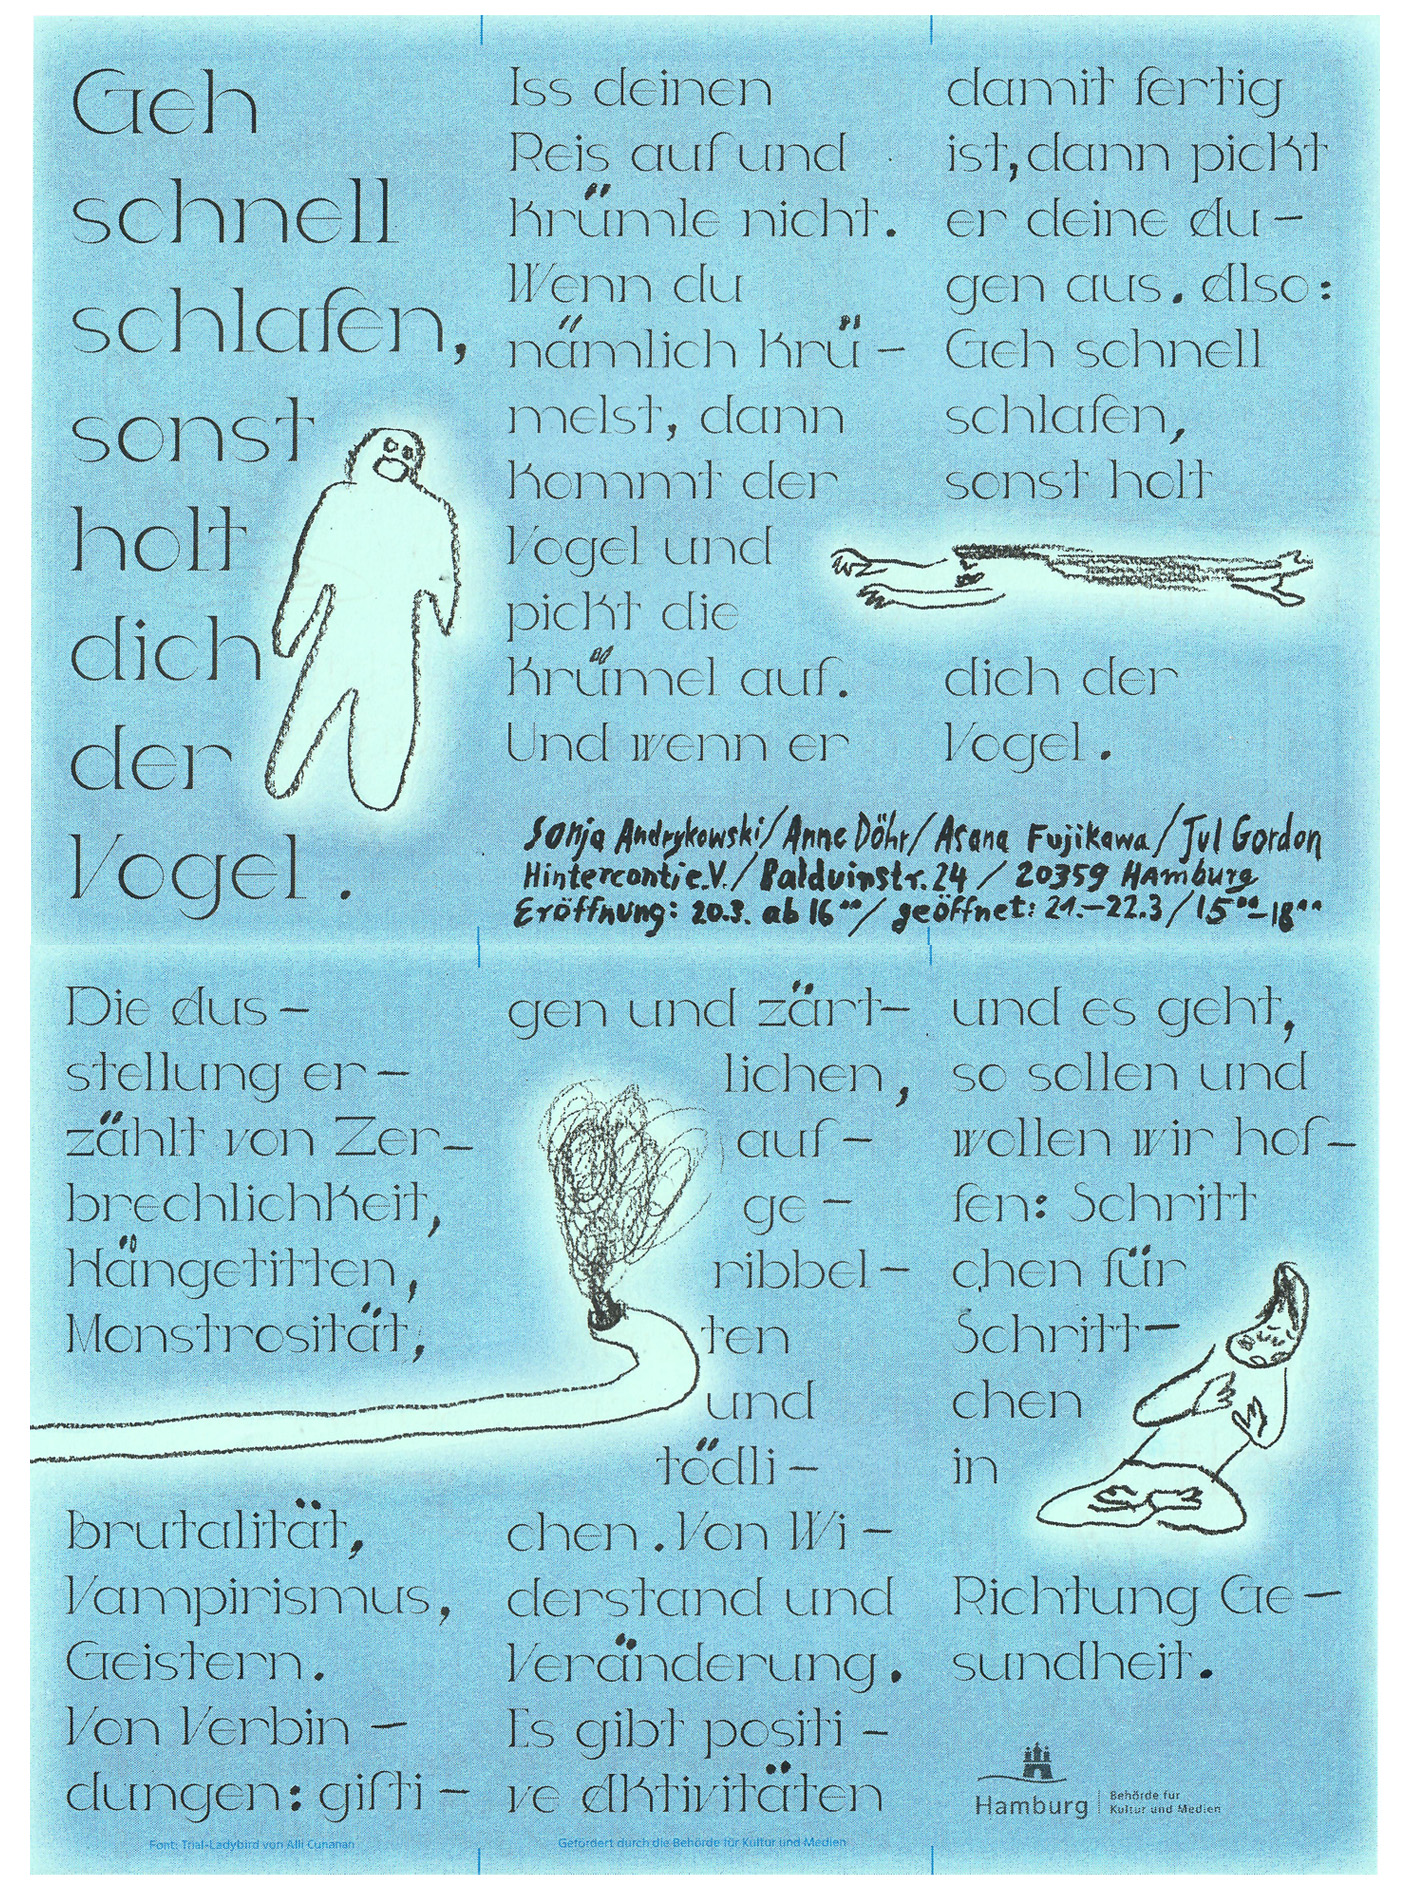 Geh
schnell
schlafen,
sonst
holt
dich
der
Vogel.
Iss deinen
Reis auf und
Krümle nicht.
Wenn du
nämlich Krü-
melst, dann
Kommt der
Vogel und
pickt die
Krümel auf.
Und wenn er
damit fertig
ist, dann pickt
er deine Au-
gen aus. Also:
Geh schnell
schlafen,
sonst holt
dich der
Vogel.
Sonja Andrykowski/Anne Döhr/Asana Fujikawa/Jul Gordon
Hinterconti e.V./Balduinstr. 24 / 20359 HAmburg
Eröffnung: 20.3. ab 16°°/ geöffnet: 21.–22.3/15°°–18°°
Die Aus-
stellung er-
zählt von Zer-
brechlichkeit,
Hängetitten,
Monstrosität,
Brutalität,
Vampirismus,
Geistern.
Von Verbin-
dungen: gifti-
gen und zärt-
lichen,
auf-
ge-
ribbel-
ten
und
tödli-
chen. Von Wi-
derstand und
Veränderung.
Es gibt positi-
ve Aktivitäten
und es geht,
so sollen und
wollen wir hof-
fen: Schritt
chen für
Schritt-
chen
in
Richtung Ge-
sundheit.
Hamburg
Behörde für
Kultur und Medien
Font: Trial-Ladybird von Alli Cunanan
Gefördert durch die Behörde für Kultur und Medien